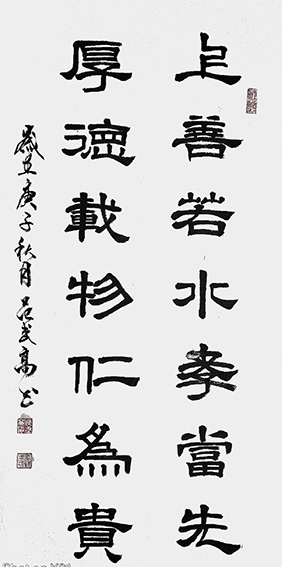 上善若水孝當先
厚德載物仁為貴
歲在庚子秋月